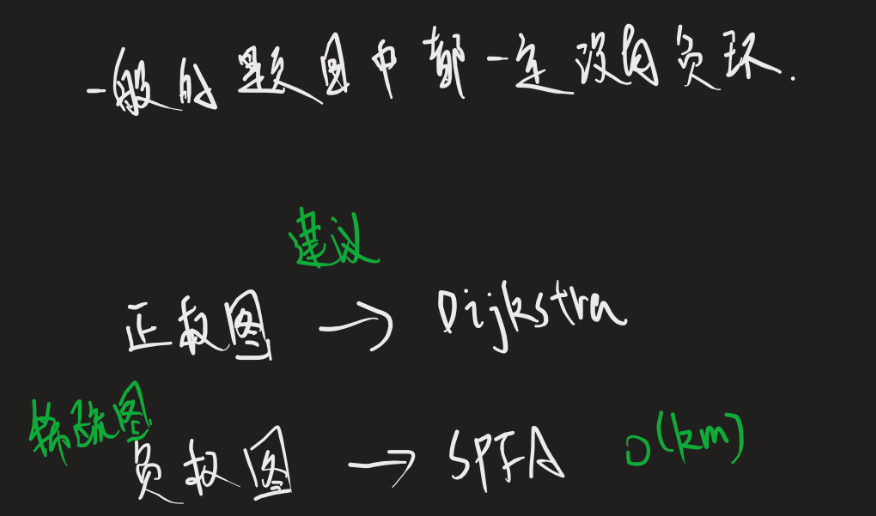 一般的题图中都一定没有负环.
建议
正权图 → Dijkstra
稀疏图
负权图 → SPFA O(km)